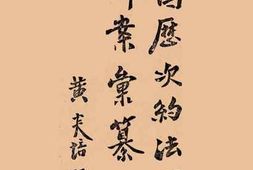 歷次約法
案彙纂
黃炎培